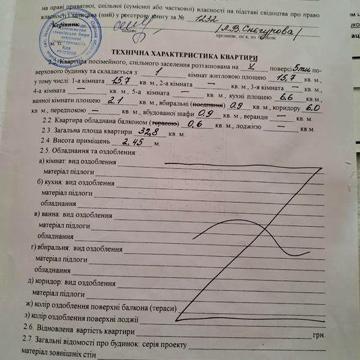 на праві приватної, спільної (сумісної або часткової) власності на підставі свідоцтва про право
власності записана (ий) у реєстрову книгу за № 1232
Керівник
/А.В. Снєгурова/
ТЕХНІЧНА ХАРАКТЕРИСТИКА КВАРТИРИ
2.2. Квартира посімейного, спільного заселення розташована на V поверсі 5ти по-
верхового будинку та складається з 1 кімнат житловою площею 15,7 кв. м,
у тому числі: 1-а кімната 15,7 кв. м, 2-а кімната кв. м, 3-я кімната кв. м,
4-а кімната кв. м, 5-а кімната кв. м, кухні площею 6,6 кв. м,
ванної кімнати площею 2,1 кв. м, вбиральні 0,9 кв. м, коридору 6,0
кв. м, передпокою кв. м, вбудованої шафи 0,9 кв. м, веранди кв. м.
2.2. Квартира обладнана балконом (терасою) 0,6 кв. м, лоджією кв. м
2.3. Загальна площа квартири 32,8 кв. м.
2.4 Висота приміщень 2,45 м.
2.5. Обладнання та оздоблення:
а) кімнат: вид оздоблення
матеріал підлоги
б) кухня: вид оздоблення
матеріал підлоги
обладнання
в) ванна: вид оздоблення
матеріал підлоги
обладнання
г) вбиральня: вид оздоблення
матеріал підлоги
обладнання
д) коридор: вид оздоблення
матеріал підлоги
ж) колір оздоблення поверхні балкона (тераси)
з) колір оздоблення поверхні лоджії
2.6. Відновлена вартість квартири грн.
2.7. Загальні відомості про будинок: серія проекту
матеріал зовнішніх стін